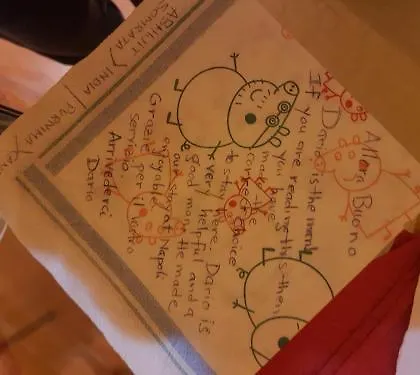 Allora Buono
If Dario is the man
you are reading this then
you have
made the
correct choice
to stay here. Dario is
very helpful and a
good man. He made
our stay at Napoli
enjoyable
Grazie per il buono
servizio.
Arrivederci
Dario
ABHIJIT
SOMRATA INDIA PURNIMA